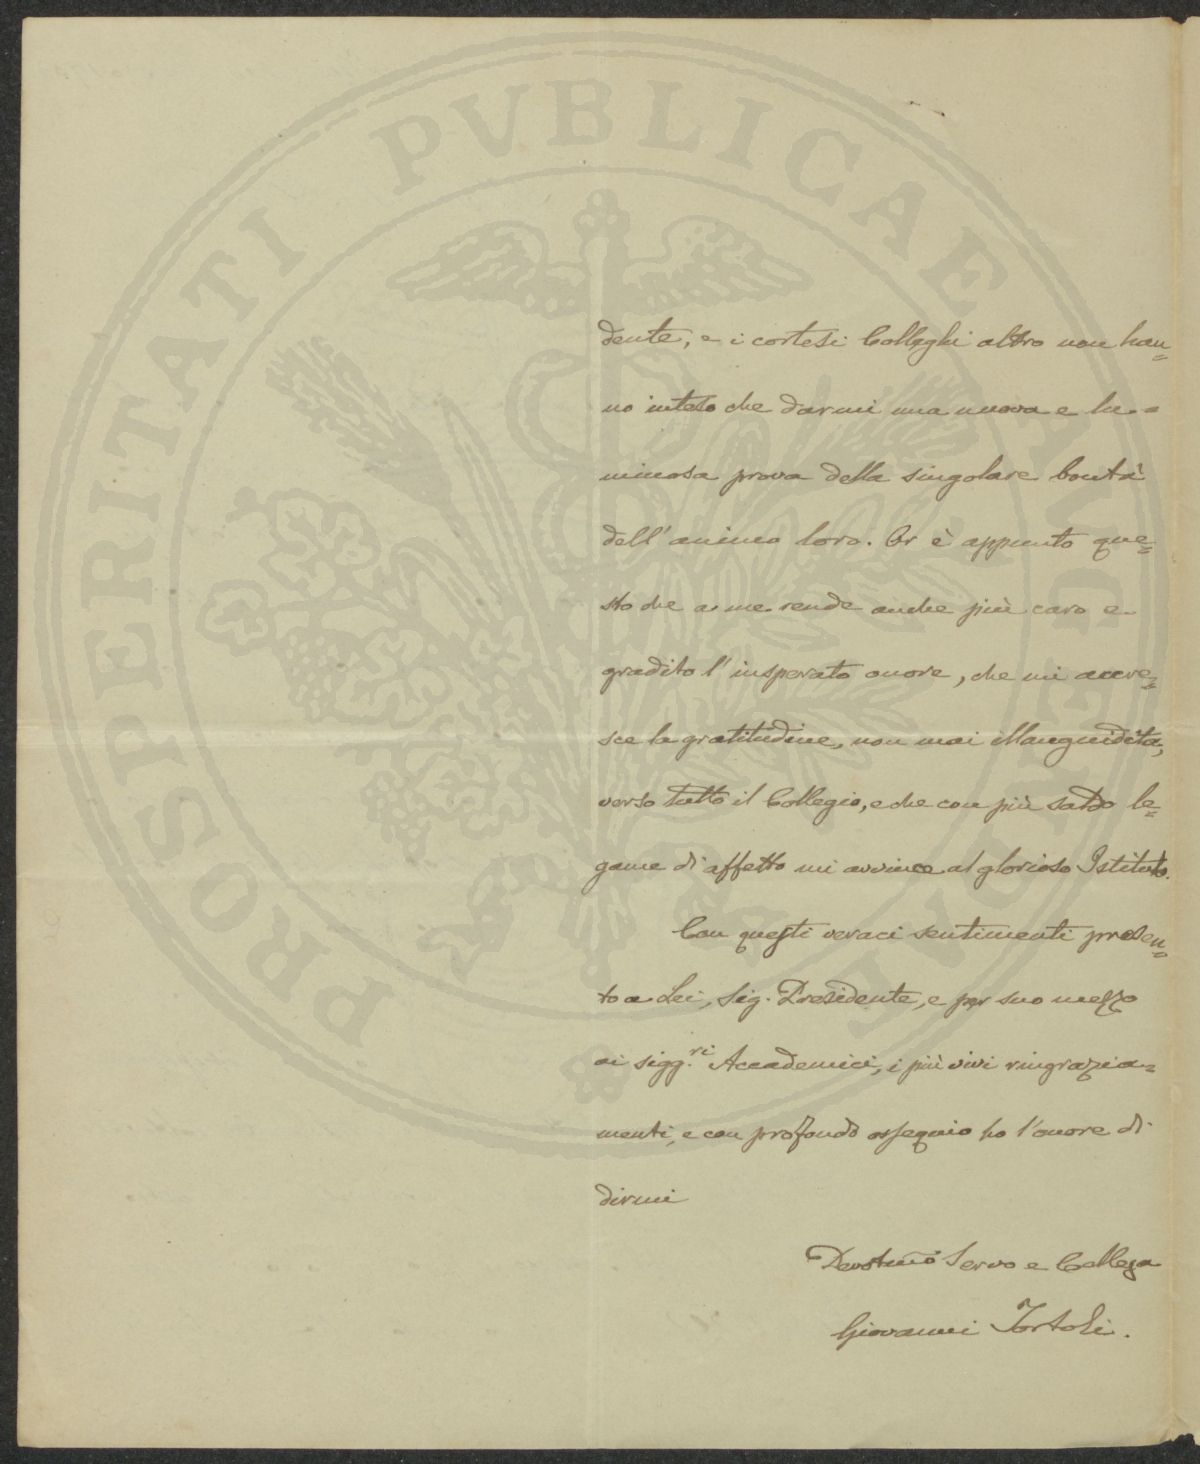 dente, e i cortesi Colleghi altro non han=
no inteso che darmi una nuova e lu=
minosa prova della singolare bontà
dell'animo loro. Or è appunto que=
sto che a me rende anche più caro e
gradito l'insperato onore, che mi accre=
sce la gratitudine, non mai illanguidita,
verso tutto il Collegio, e che con più saldo le=
game di affetto mi avvince al glorioso Istituto.
Con questi veraci sentimenti presen=
to a Lei, Sig. Presidente, e per suo mezzo
ai sigg.ri Accademici, i più vivi ringrazia=
menti, e con profondo ossequio ho l'onore di
dirmi
Devotmo Servo e Collega
Giovanni Tortoli.
PROSPERITATI PVBLICAE AVGENDAE